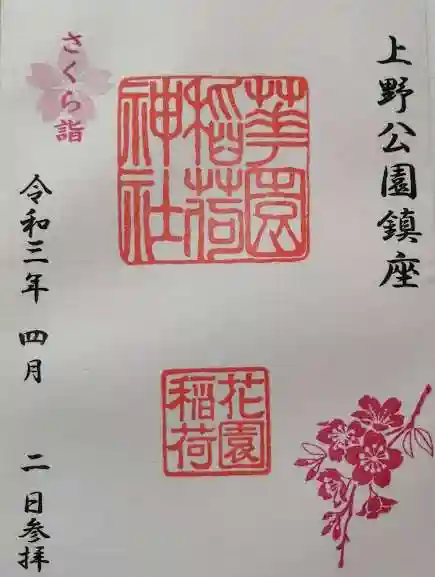 上野公園鎮座
華園
稲荷
神社
花園
稲荷
さくら詣
令和三年 四月 二日参拝